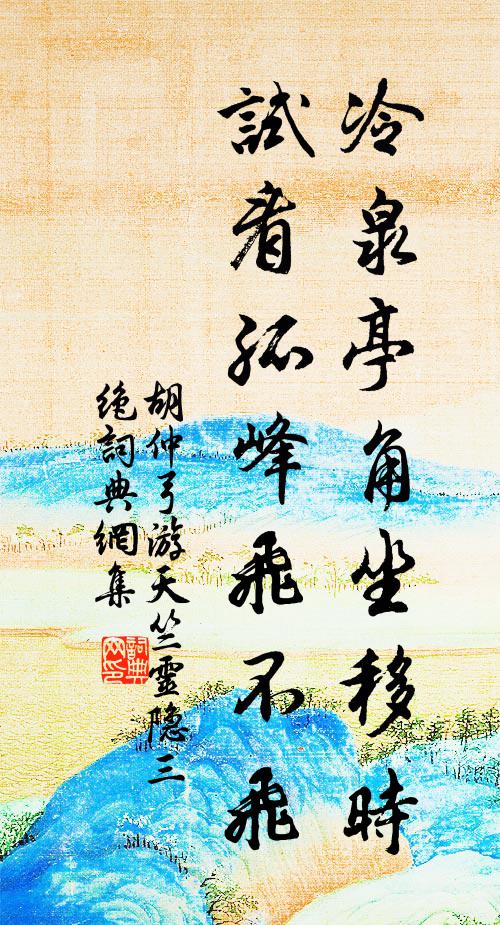 冷泉亭角坐移時
試看孤峰飛不飛
胡仲弓游天竺靈隐三
绝詞典網集
詞典